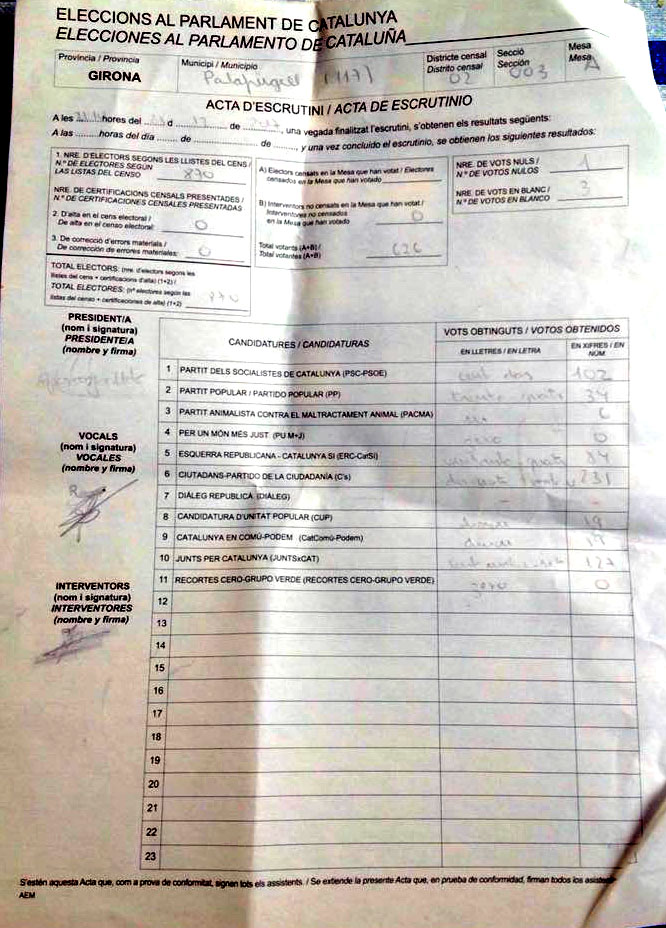 ELECCIONS AL PARLAMENT DE CATALUNYA
ELECCIONES AL PARLAMENTO DE CATALUÑA
Provincia / Provincia
GIRONA
Municipi / Municipio
Palafrugell (117)
Districte censal
Distrito censal
02
Secció
Sección
003
Mesa
Mesa
A
ACTA D'ESCRUTINI / ACTA DE ESCRUTINIO
A les hores del d de , una vegada finalitzat l'escrutini, s'obtenen els resultats següents:
A las ........horas del día ...... de ............ de........, y una vez concluido el escrutinio, se obtienen los siguientes resultados:
1. NRE. D'ELECTORS SEGONS LES LLISTES DEL CENS /
N.º DE ELECTORES SEGÚN
LAS LISTAS DEL CENSO 870
NRE. DE CERTIFICACIONS CENSALS PRESENTADES /
N.º DE CERTIFICACIONES CENSALES PRESENTADAS
2. D'alta en el cens electoral /
De alta en el censo electoral: 0
3. De correcció d'errors materials /
De corrección de errores materiales: 0
TOTAL ELECTORS: (nre. d'electors segons les
llistes del cens + certificacions d'alta) (1+2) /
TOTAL ELECTORES: (nº electores según las
listas del censo + certificaciones de alta) (1+2) 870
A) Electors censats en la Mesa que han votat / Electores
censados en la Mesa que han votado
B) Interventors no censats en la Mesa que han votat /
Interventores no censados
en la Mesa que han votado 0
Total votants (A+B) /
Total votantes (A+B) 626
NRE. DE VOTS NULS /
N.º DE VOTOS NULOS 1
NRE. DE VOTS EN BLANC /
N.º DE VOTOS EN BLANCO 3
PRESIDENT/A
(nom i signatura)
PRESIDENTE/A
(nombre y firma)
VOCALS
(nom i signatura)
VOCALES
(nombre y firma)
INTERVENTORS
(nom i signatura)
INTERVENTORES
(nombre y firma)
CANDIDATURES / CANDIDATURAS
VOTS OBTINGUTS / VOTOS OBTENIDOS
EN LLETRES / EN LETRA
EN XIFRES / EN NÚM
1 PARTIT DELS SOCIALISTES DE CATALUNYA (PSC-PSOE) cent dos 102
2 PARTIT POPULAR / PARTIDO POPULAR (PP) 34
3 PARTIT ANIMALISTA CONTRA EL MALTRACTAMENT ANIMAL (PACMA) 6
4 PER UN MÓN MÉS JUST (PU M+J) zero 0
5 ESQUERRA REPUBLICANA - CATALUNYA SI (ERC-CatSí) 84
6 CIUTADANS-PARTIDO DE LA CIUDADANÍA (C's) 231
7 DIÀLEG REPUBLICÀ (DIÀLEG) - -
8 CANDIDATURA D'UNITAT POPULAR (CUP) 19
9 CATALUNYA EN COMÚ-PODEM (CatComú-Podem)
10 JUNTS PER CATALUNYA (JUNTSxCAT) 127
11 RECORTES CERO-GRUPO VERDE (RECORTES CERO-GRUPO VERDE) zero 0
12
13
14
15
16
17
18
19
20
21
22
23
S'estén aquesta Acta que, com a prova de conformitat, signen tots els assistents. / Se extiende la presente Acta que, en prueba de conformidad, firman todos los
AEM